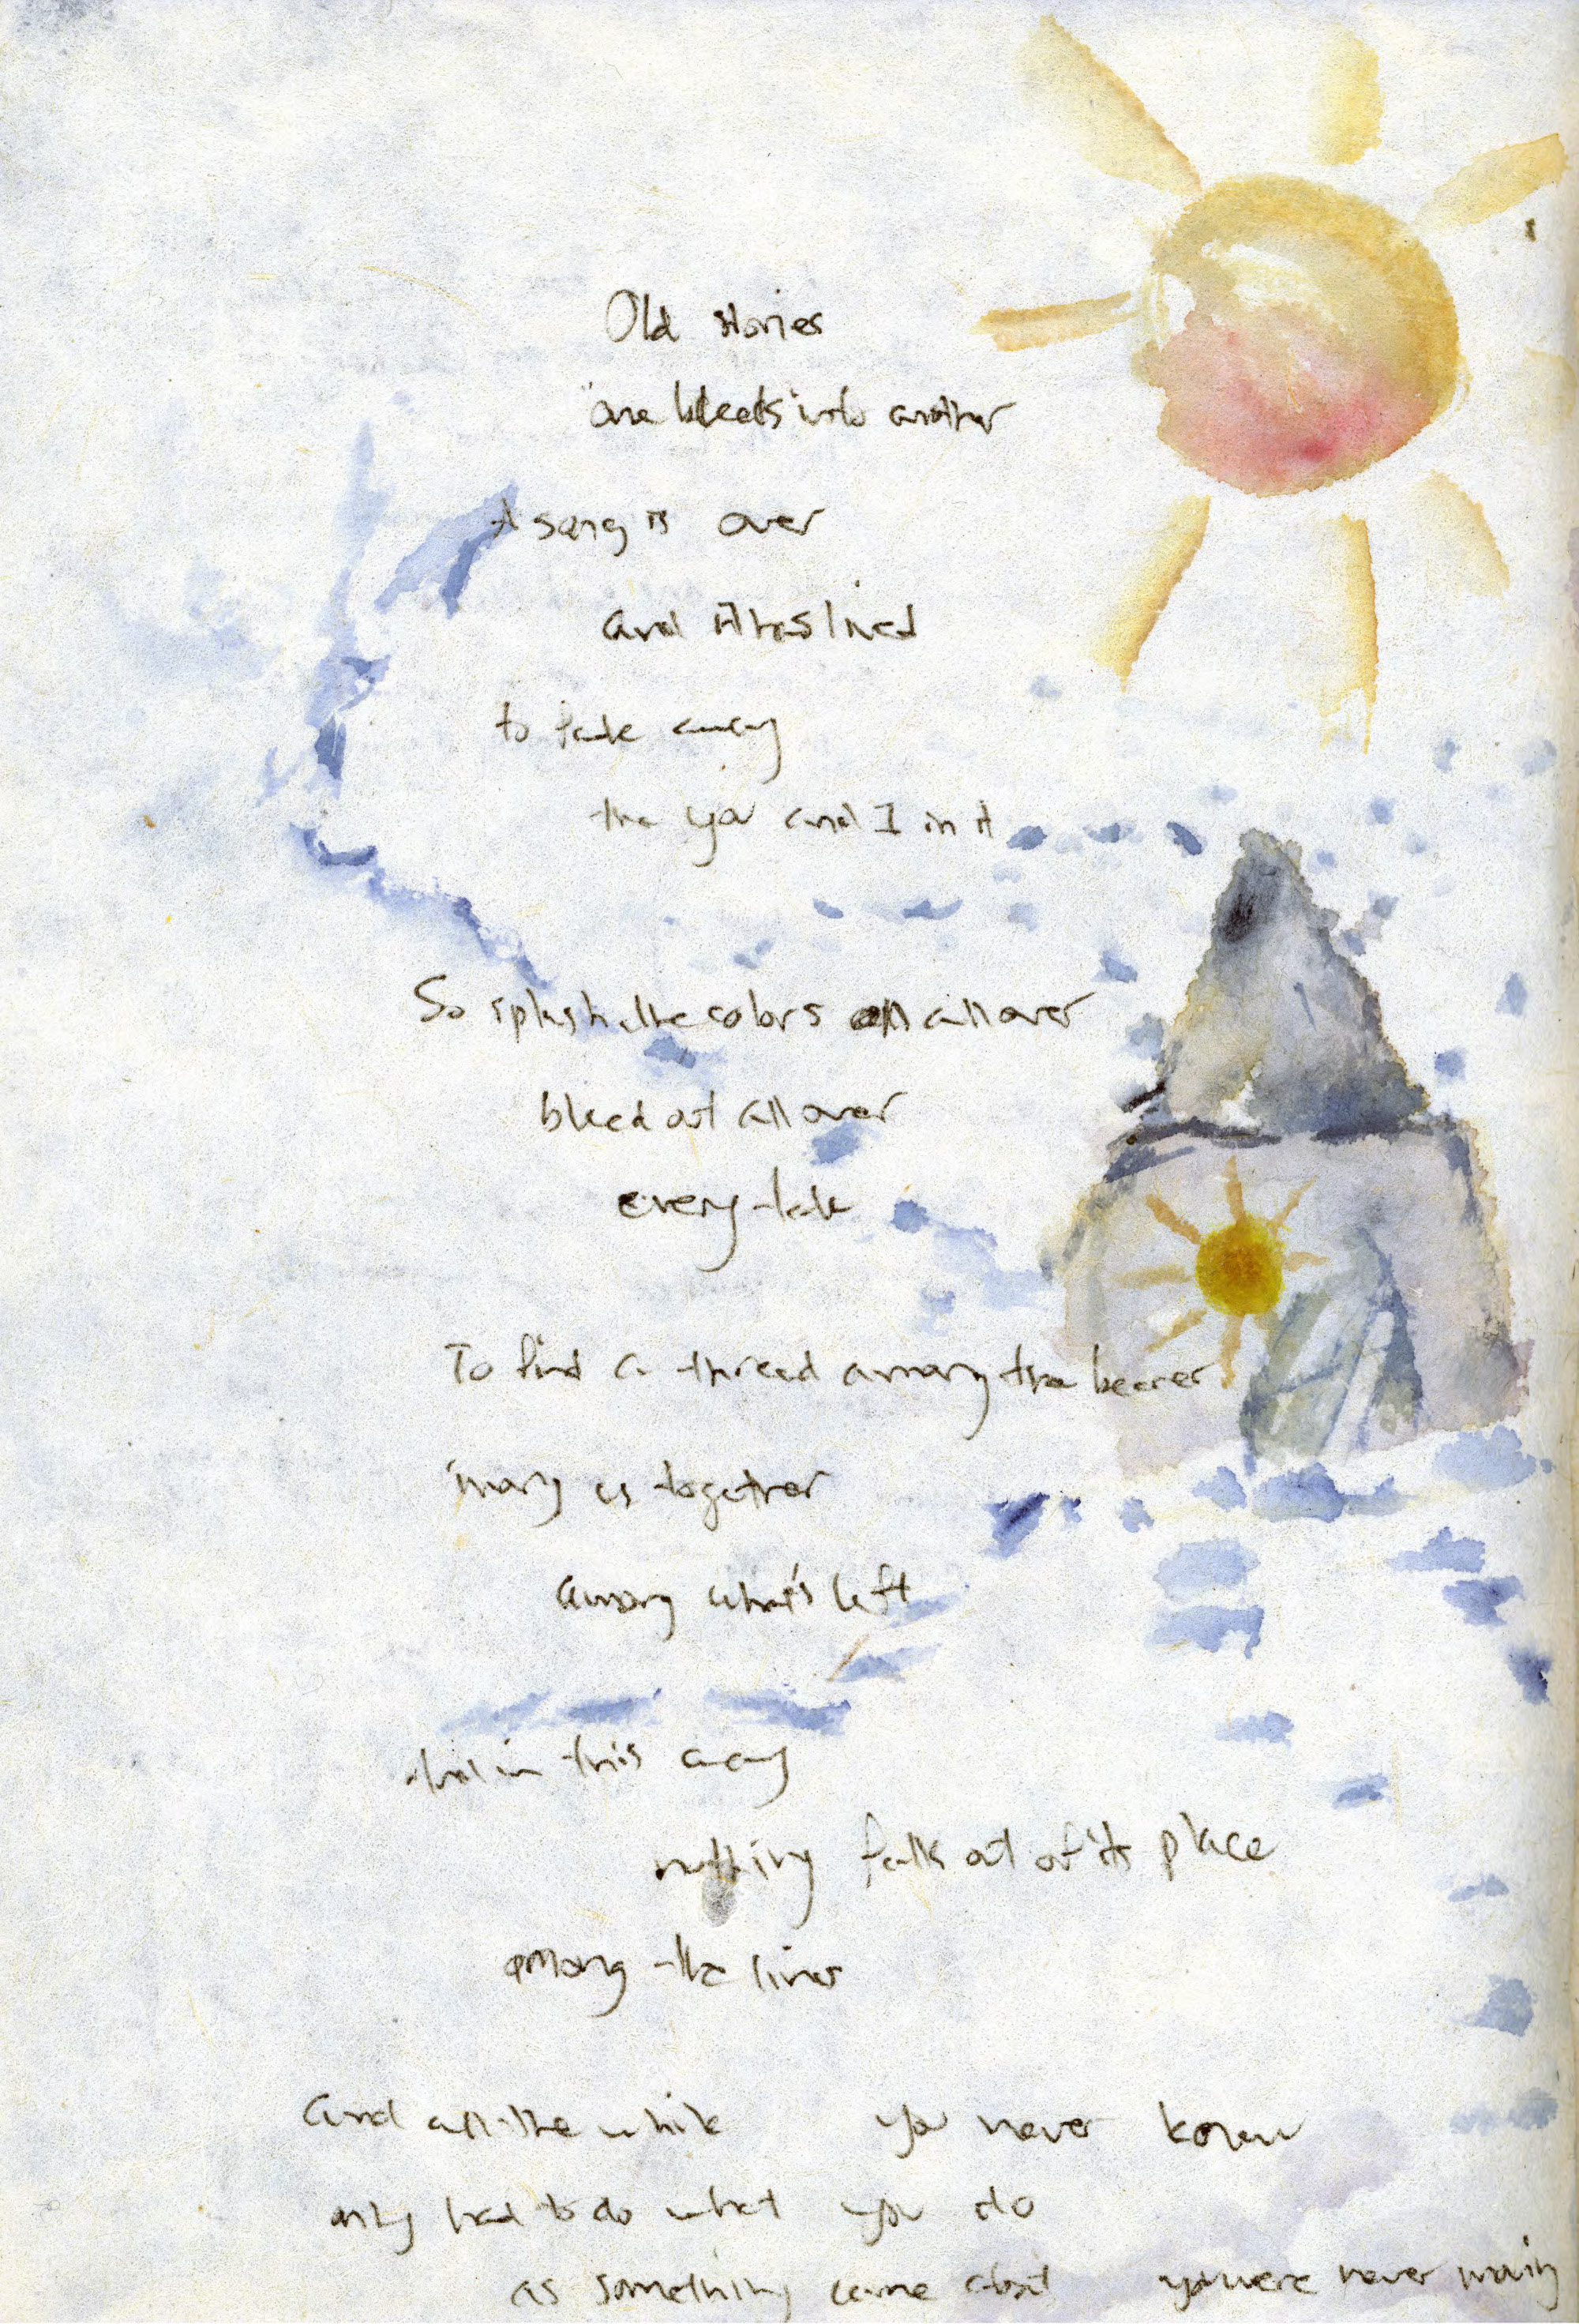 Old stories
one bleeds into another
A song is over
and it has lived
to fade away
the you and I in it
So splash the colors all over
bleed out all over
every
To find a thread among the
us together
among what's left
this way
nothing falls out of its place
among the lines
and all the while you never knew
only had to do what you do
as something came about you were never